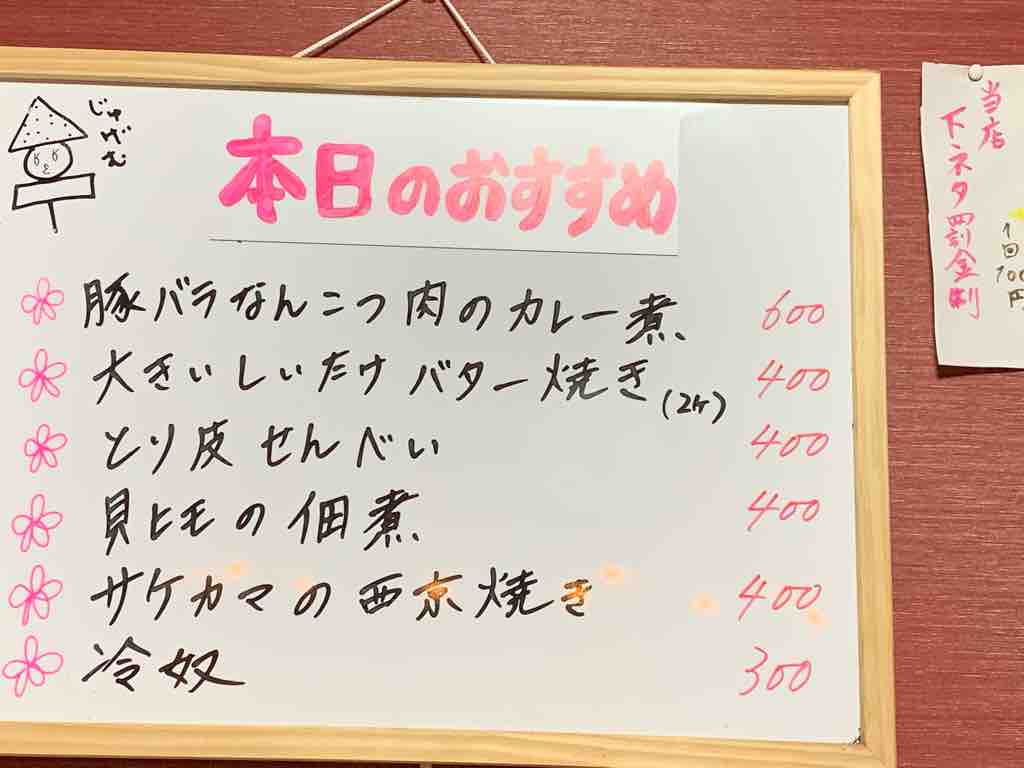 じゅげむ
本日のおすすめ
豚バラなんこつ肉のカレー煮 600
大きいしいたけバター焼き(2ケ) 400
とり皮せんべい 400
貝ヒモの佃煮 400
サケカマの西京焼き 400
冷奴 300
当店
下ネタ罰金制
1回
100
円